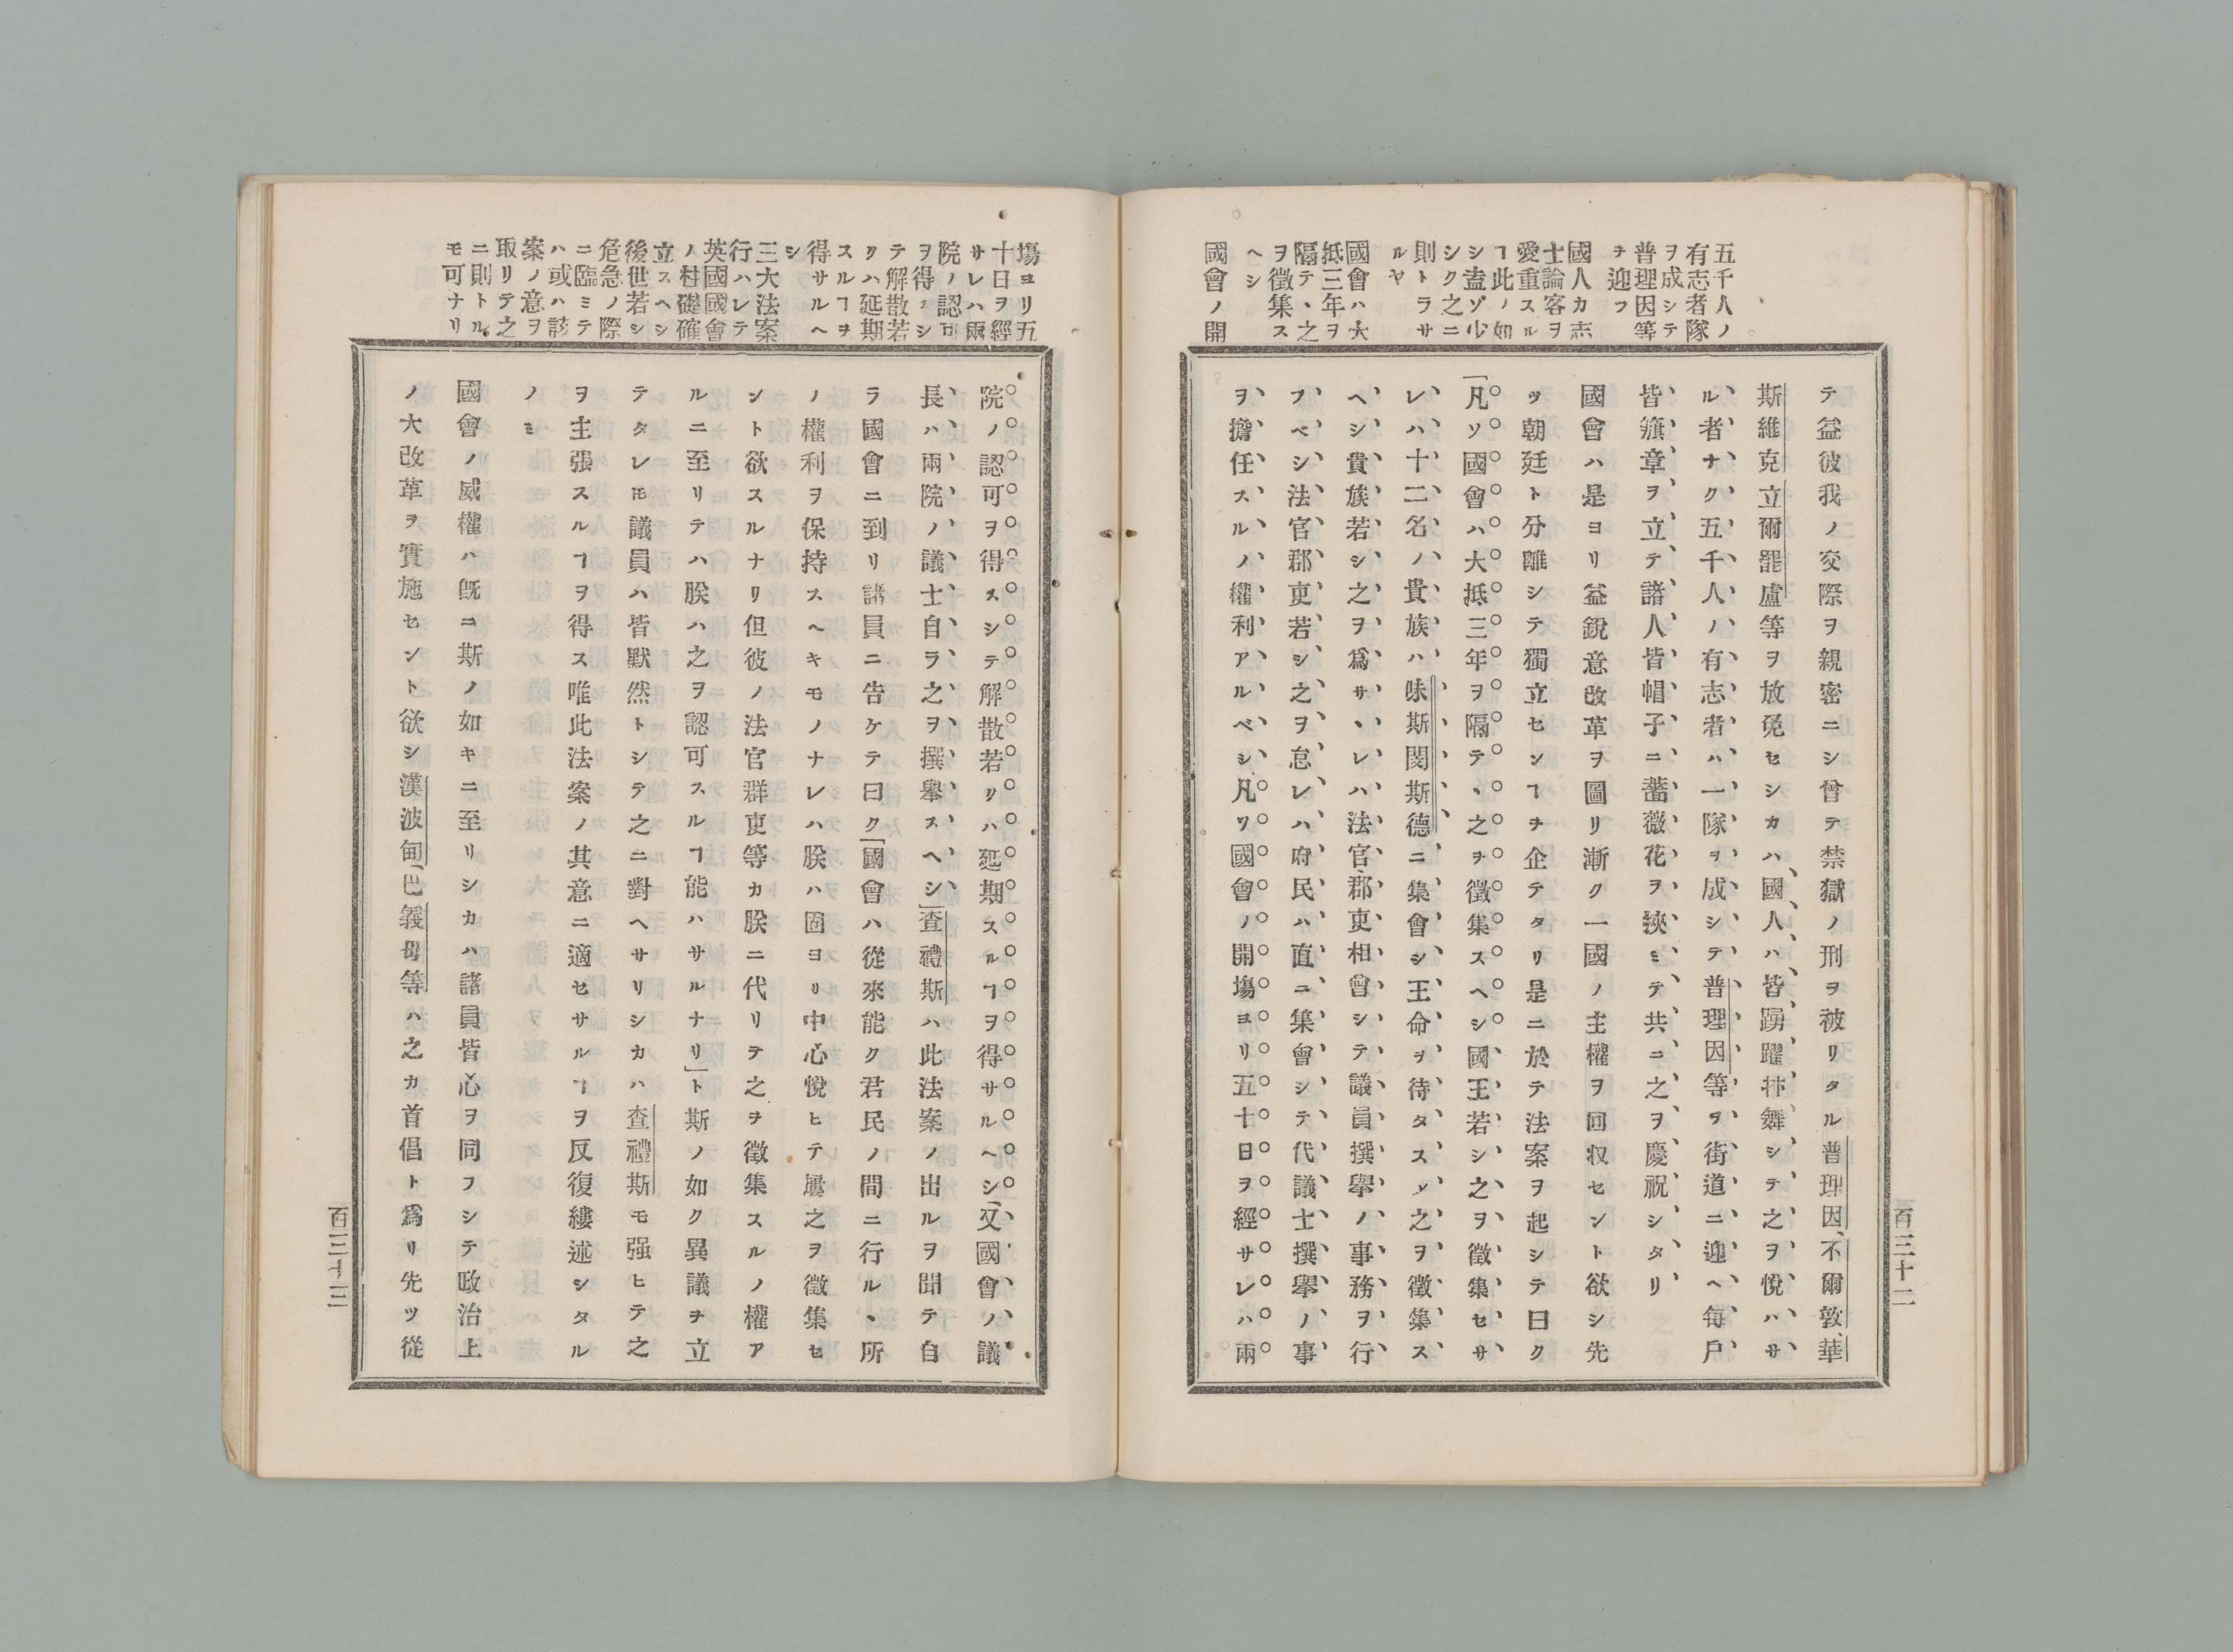 五千人ノ
有志者隊
ヲ成シテ
普理因等
チ迎フ
國人カ志
士論客ヲ
愛重スル
ヿ此ノ如
シ盍ゾ少
シク之ニ
則トラサ
ルヤ
國會ハ大
抵三年ヲ
隔テヽ之
ヲ徵集ス
ヘシ
國會ノ開
テ益彼我ノ交際ヲ親密ニシ曾テ禁獄ノ刑ヲ被リタル普理因、不爾敦、華
斯維克立爾罷盧等ヲ放免セシカハ、國人ハ、皆踴躍抃舞シテ之ヲ悅ハサ
ル者ナク五千人ノ有志者ハ一隊ヲ成シテ普理因等ヲ街道ニ迎ヘ每戶
皆旗章ヲ立テ諸人皆帽子ニ薔薇花ヲ挾ミテ共ニ之ヲ慶祝シタリ
國會ハ是ヨリ益銳意改革ヲ圖リ漸ク一國ノ主權ヲ回収セント欲シ先
ッ朝廷ト分離シテ獨立センヿチ企テタリ是ニ於テ法案ヲ起シテ曰ク
「凡ソ國會ハ大抵三年ヲ隔テヽ之ヲ徵集スヘシ國王若シ之ヲ徵集セサ
レハ十二名ノ貴族ハ味斯閔斯德ニ集會シ王命ヲ待タスシテ之ヲ徵集ス
ヘシ貴族若シ之ヲ爲サヽレハ法官、郡吏相會シテ議員撰擧ノ事務ヲ行
フベシ法官郡吏若シ之ヲ怠レハ府民ハ直ニ集會シテ代議士撰擧ノ事
ヲ擔任スルノ權利アルベシ凡ソ國會ノ開塲ヨリ五十日ヲ經サレハ兩
百三十二
塲ヨリ五
十日ヲ經
サレハ兩
院ノ認可
ヲ得スシ
テ解散若
クハ延期
スルヿヲ
得サルヘ
シ
三大法案
行ハレテ
英國國會
ノ柱礎確
立スヘシ
後世若シ
危急ノ際
ニ臨ミテ
ハ或ハ該
案ノ意ヲ
取リテ之
ニ則トル
モ可ナリ
院ノ認可ヲ得スシテ解散若クハ延期スルヿヲ得サルヘシ「又國會ノ議
長ハ兩院ノ議士自ラ之ヲ撰擧スヘシ」査禮斯ハ此法案ノ出ルヲ聞テ自
ラ國會ニ到リ諸員ニ告ケテ曰ク「國會ハ從來能ク君民ノ間ニ行ルヽ所
ノ權利ヲ保持スヘキモノナレハ朕ハ固ヨリ中心悅ヒテ屢之ヲ徵集セ
ント欲スルナリ但彼ノ法官群吏等カ朕ニ代リテ之ヲ徵集スルノ權ア
ルニ至リテハ朕ハ之ヲ認可スルヿ能ハサルナリ」ト斯ノ如ク異議チ立
テタレ𪜈議員ハ皆默然トシテ之ニ對ヘサリシカハ査禮斯モ强ヒテ之
ヲ主張スルヿヲ得ス唯此法案ノ其意ニ適セサルヿヲ反復縷述シタル
ノミ
國會ノ威權ハ旣ニ斯ノ如キニ至リシカハ諸員皆心ヲ同フシテ政治上
ノ大改革ヲ實施セント欲シ漢波甸、巴義母等ハ之カ首倡ト爲リ先ツ從
百三十三